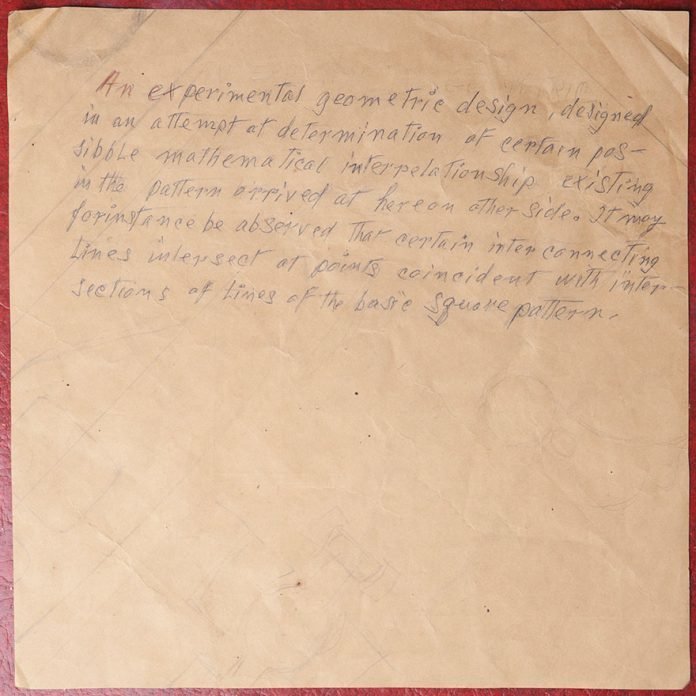 An experimental geometric design, designed
in an attempt at determination of certain pos-
sibble mathematical interpelationship existing
in the pattern arrived at hereon other side. It may
forinstance be observed that certain inter connecting
lines intersect at points coincident with inter-
sections of lines of the basic square pattern.